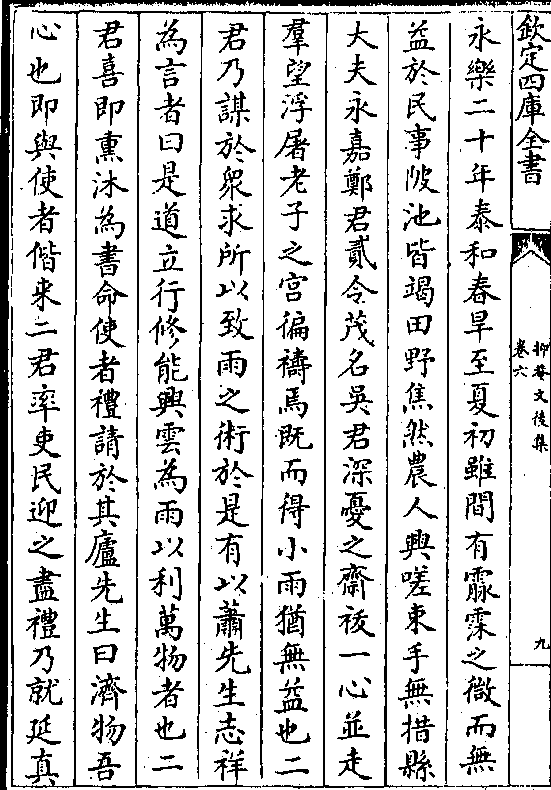 欽定四庫全書
抑菴文後集
卷六
九
永樂二十年泰和春旱至夏初雖間有霢霂之微而無
益於民事陂池皆竭田野焦然農人興嗟束手無措縣
大夫永嘉鄭君貳令茂名吳君深憂之齋祓一心並走
羣望浮屠老子之宫徧禱焉既而得小雨猶無益也二
君乃謀於衆求所以致雨之術於是有以蕭先生志祥
為言者曰是道立行修能興雲為雨以利萬物者也二
君喜即熏沐為書命使者禮請於其廬先生曰濟物吾
心也即與使者偕来二君率吏民迎之盡禮乃就延真